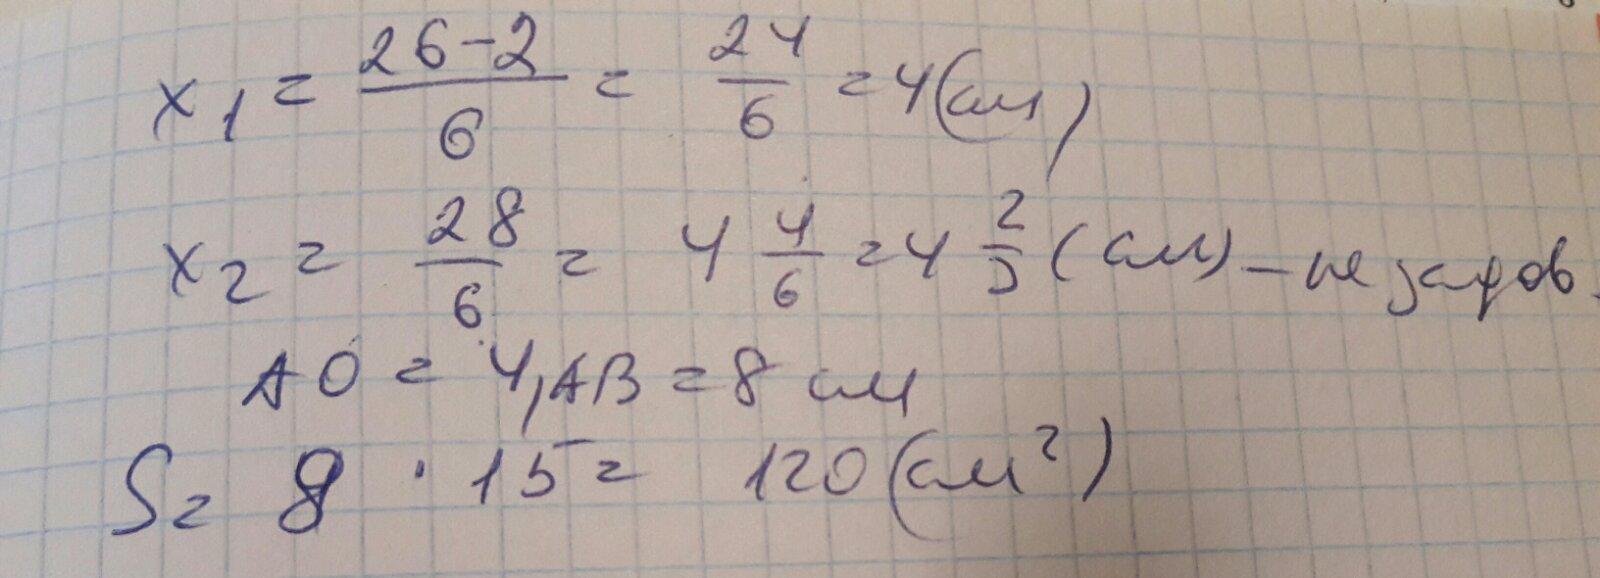 x₁ = (26-2)/6 = 24/6 = 4 (см)
x₂ = 28/6 = 4 4/6 = 4 2/3 (см) - не задов.
AO = 4, AB = 8 см
S = 8 · 15 = 120 (см²)